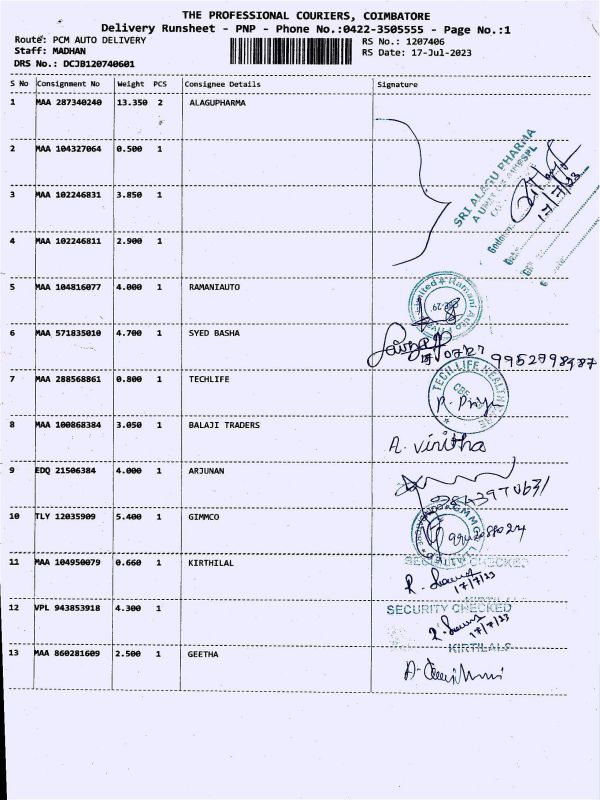 THE PROFESSIONAL COURIERS, COIMBATORE
Delivery Runsheet - PNP - Phone No.:0422-3505555 - Page No.:1
Route: PCM AUTO DELIVERY
RS No.: 1207406
Staff: MADHAN
RS Date: 17-Jul-2023
DRS No.: DCJB120740601
S No Consignment No Weight PCS Consignee Details Signature
1 MAA 287340240 13.350 2 ALAGUPHARMA
2 MAA 104327064 0.500 1
SRI ALAGU PHARMA
17/7/23
3 MAA 102246831 3.850 1
4 MAA 102246811 2.900 1
5 MAA 104816077 4.000 1 RAMANIAUTO
6 MAA 571835010 4.700 1 SYED BASHA
9952798487
7 MAA 288568861 0.800 1 TECHLIFE
TECH LIFE HEALTH
R. Priya
8 MAA 100868384 3.050 1 BALAJI TRADERS
A. Vinitha
9 EDQ 21506384 4.000 1 ARJUNAN
10 TLY 12035909 5.400 1 GIMMCO
11 MAA 104950079 0.660 1 KIRTHILAL
SECURITY CHECKED
17/7/23
12 VPL 943853918 4.300 1
SECURITY CHECKED
17/7/23
KIRTILALS
13 MAA 860281609 2.500 1 GEETHA